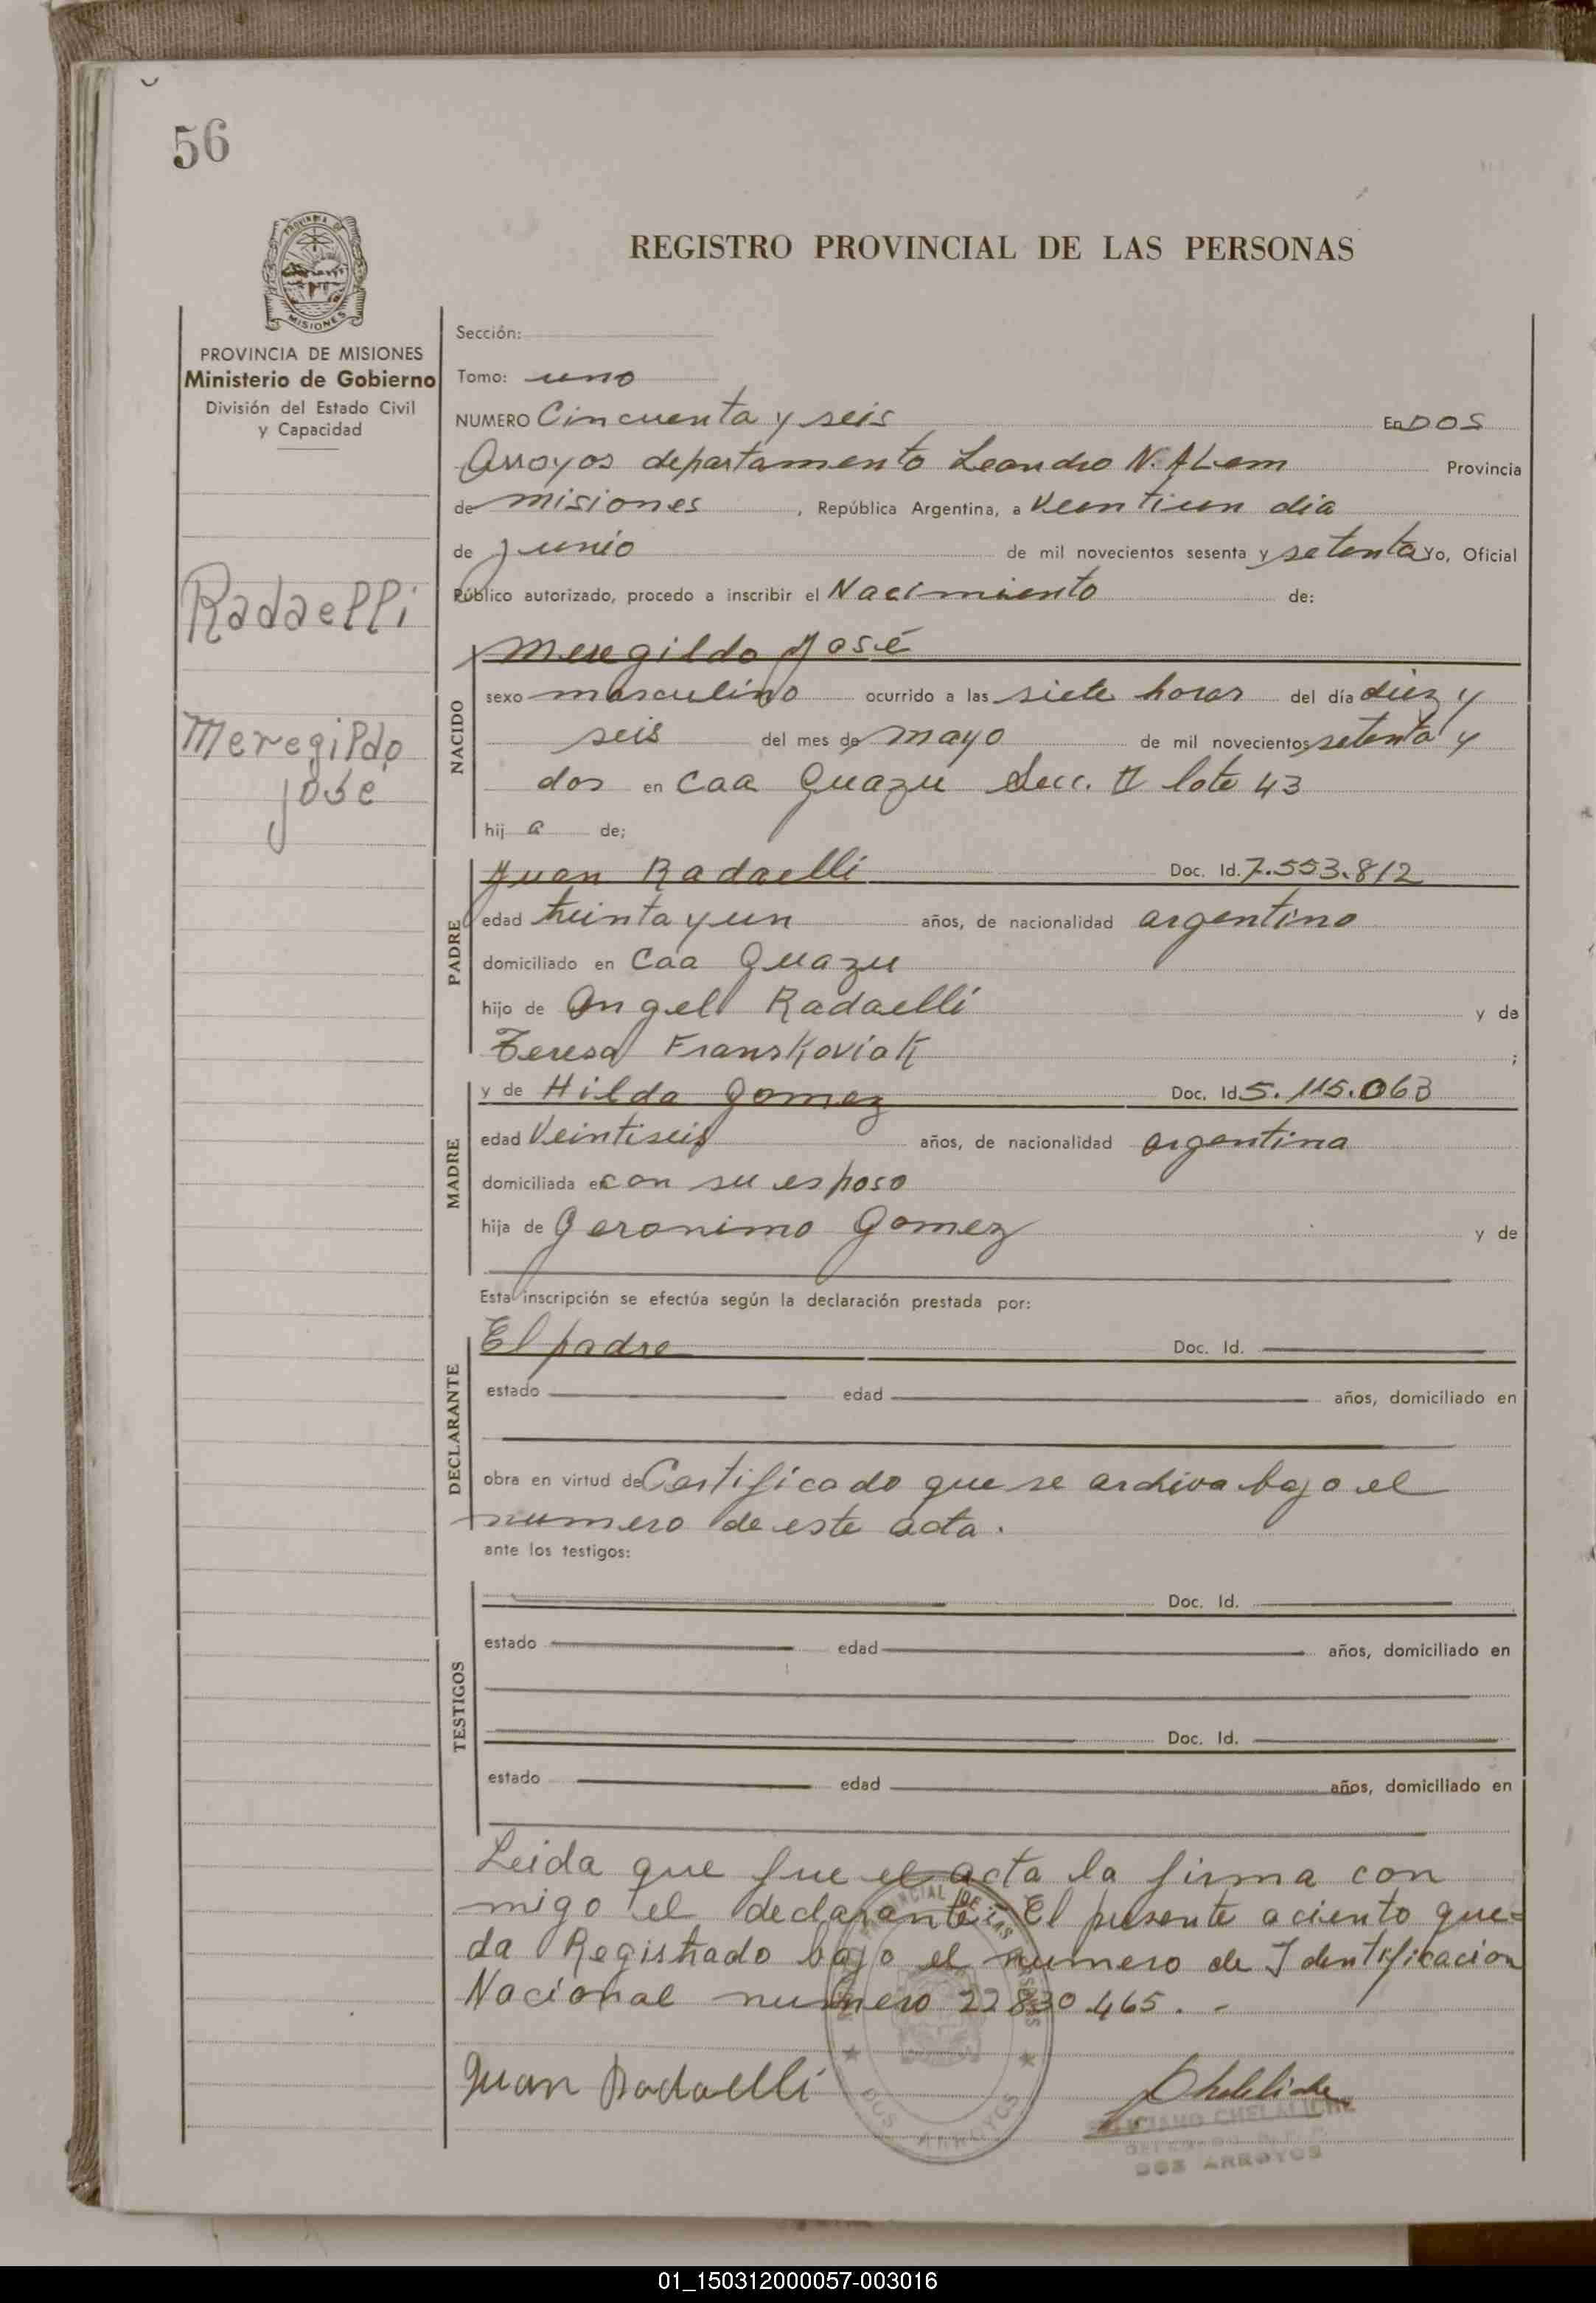 56
PROVINCIA DE
MISIONES
PROVINCIA DE MISIONES
Ministerio de Gobierno
División del Estado Civil
y Capacidad
Radaelli
Meregildo
José
REGISTRO PROVINCIAL DE LAS PERSONAS
Sección:
Tomo: uno
NUMERO Cincuenta y seis En DOS
Arroyos departamento Leandro N. ALem Provincia
de misiones, República Argentina, a Veintiun dia
de junio de mil novecientos sesenta y setenta Yo, Oficial
Público autorizado, procedo a inscribir el Nacimiento de:
Meregildo José
NACIDO
sexo masculino ocurrido a las siete horas del día diez y
seis del mes de mayo de mil novecientos setenta y
dos en Caa Guazu Secc. II lote 43
hij a de;
PADRE
Juan Radaelli Doc. Id. 7.553.812
edad treinta y un años, de nacionalidad argentino
domiciliado en Caa Guazu
hijo de Angel Radaelli y de
Teresa Franskoviak ;
MADRE
y de Hilda Gomez Doc. Id 5.115.063
edad Veintiseis años, de nacionalidad argentina
domiciliada en con su esposo
hija de Geronimo Gomez y de
Esta inscripción se efectúa según la declaración prestada por:
DECLARANTE
El padre Doc. Id.
estado edad años, domiciliado en
obra en virtud de Certificado que se archiva bajo el
numero de este acta.
ante los testigos:
TESTIGOS
Doc. Id.
estado edad años, domiciliado en
Doc. Id.
estado edad años, domiciliado en
Leida que fue el acta la firma con
migo el declarante. El presente aciento que=
da Registrado bajo el numero de Identificacion
Nacional numero 22830.465. -
Juan Radaelli
DOS ARROYOS
CHELALICHE
DOS ARROYOS
01_150312000057-003016